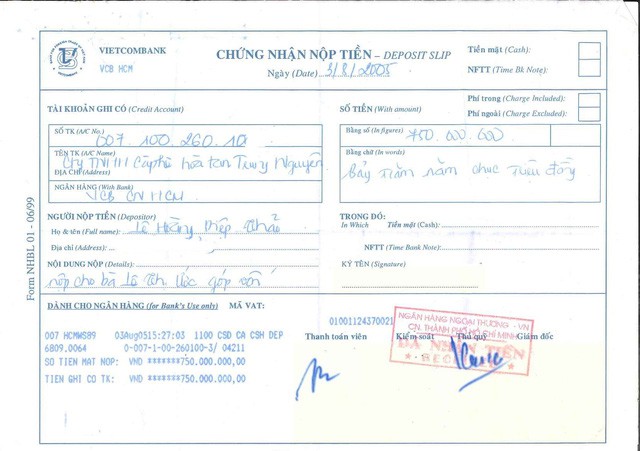 VIETCOMBANK
VCB HCM
CHỨNG NHẬN NỘP TIỀN – DEPOSIT SLIP
Ngày (Date) 3/8/2005
Tiền mặt (Cash):
NFTT (Time Bk Note):
Phí trong (Charge Included):
Phí ngoài (Charge Excluded):
TÀI KHOẢN GHI CÓ (Credit Account)
SỐ TK (A/C No.) 007.100.260.10
TÊN TK (A/C Name) Cty TNHH Càphê hòa tan Trung Nguyên
ĐỊA CHỈ (Address)
NGÂN HÀNG (With Bank) VCB CN HCM
SỐ TIỀN (With amount)
Bằng số (In figures) 750.000.000
Bằng chữ (In words)
Bảy trăm năm chục triệu đồng
NGƯỜI NỘP TIỀN (Depositor)
Họ & tên (Full name): Lê Hoàng Diệp Thảo
Địa chỉ (Address):
NỘI DUNG NỘP (Details):
nộp cho bà Lê Thị Ước góp vốn
TRONG ĐÓ:
In Which Tiền mặt (Cash):
NFTT (Time Bank Note):
KÝ TÊN (Signature)
Form NHBL 01 - 06/99
DÀNH CHO NGÂN HÀNG (for Bank's Use only) MÃ VAT:
01001124370021
007 HCMWS89 03Aug0515:27:03 1100 CSD CA CSH DEP
6809.0064 0-007-1-00-260100-3/ 04211
SO TIEN MAT NOP: VND *******750.000.000,00
TIEN GHI CO TK: VND *******750.000.000,00
Thanh toán viên Kiểm soát Thủ quỹ Giám đốc
NGÂN HÀNG NGOẠI THƯƠNG - VN
CN. THÀNH PHỐ HỒ CHÍ MINH
ĐÃ NHẬN TIỀN